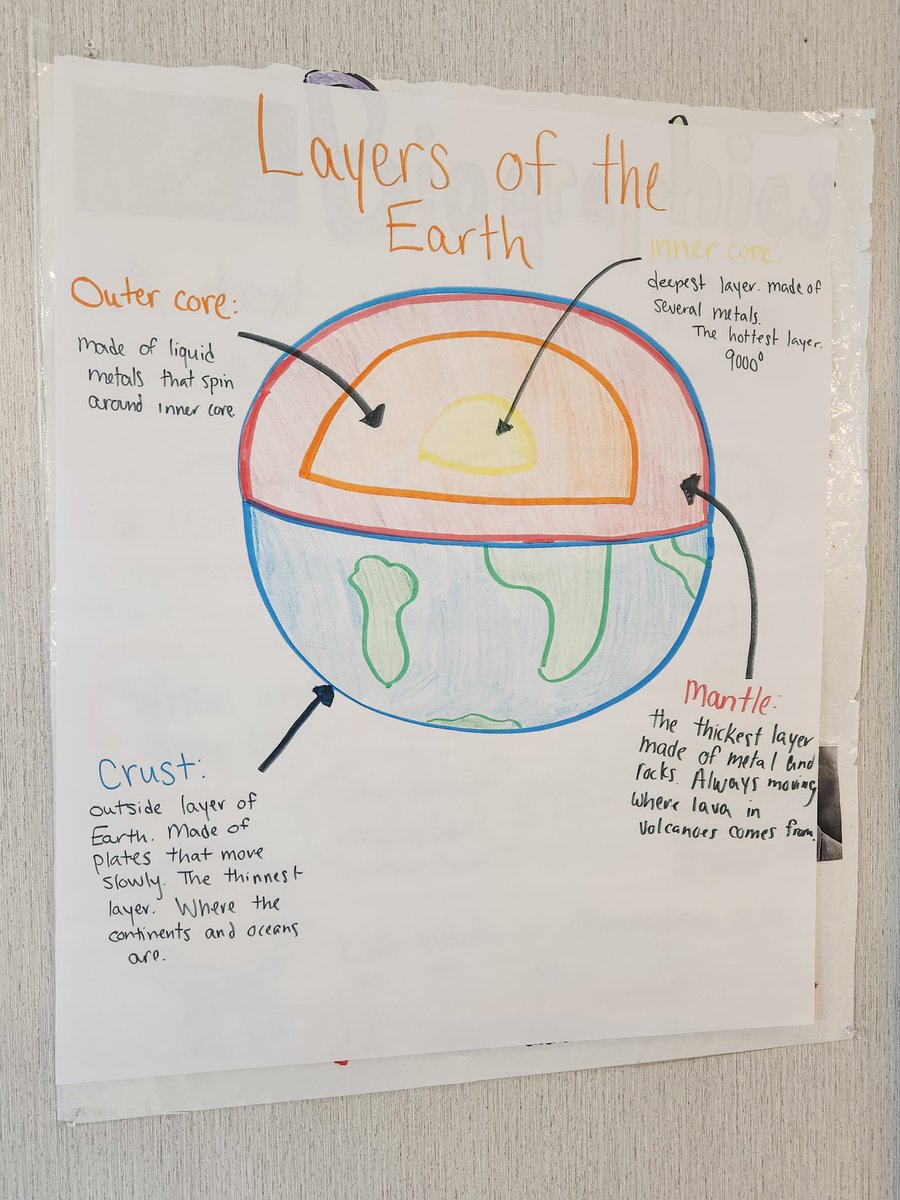 Layers of the
Earth
Outer core:
made of liquid
metals that spin
around inner core.
Inner core:
deepest layer. made of
several metals.
The hottest layer.
9000°
Mantle:
the thickest layer
made of metal and
rocks. Always moving
where lava in
volcanoes comes from.
Crust:
outside layer of
Earth. Made of
plates that move
slowly. The thinnest
layer. Where the
continents and oceans
are.
Biographies
text